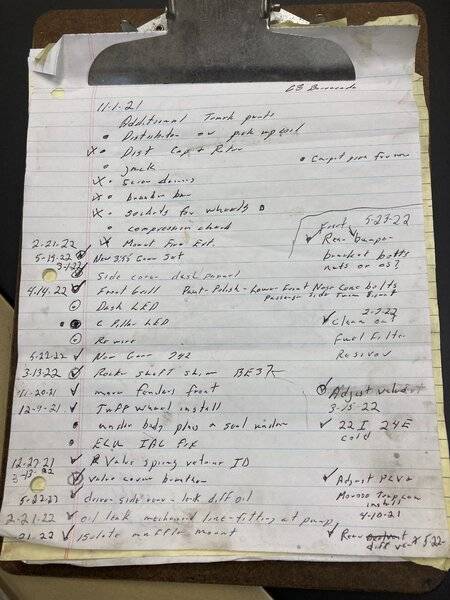 68 Barracuda
11.1.21
Additional Trunk parts
• Distributor or pick up coil
X • Dist Cap & Rotor
• jack
• Carpet pins for now
X • Screw drivers
X • breaker bar
X • Sockets for wheels
• compression
2-21-22 X Mount Fire Ext.
5-23-22
Rear bumper
bracket bolts
nuts or os?
5-19-22 New 3.55 Gear Set
Side cover dash panel
4-14-22 Front Grill Paint-Polish-Lower Front Nose Cone bolts
Passenger Side Turn
Dash LED
✓ Clean out
Fuel Filter
C Pillar LED
Re wire
5-22-22 ✓ New Gear 742
3-13-22 Rocker shaft shim BE3K
11-20-21 ✓ move fenders front
Adjust
3-15-22
12-9-21 ✓ Tuff wheel install
✓ 22I 24E
cold
• under body plugs & seal
• ECU IAC fix
12-27-21 ✓ R Valve spring ID
3-13-22 Valve cover breather
✓ Adjust PCV2
install
4-10-21
5-22-22 ✓ driver side rear leak diff oil
2-21-22 ✓ oil leak mechanical line-fitting at pump
21-22 ✓ isolate muffler mount
✓ Rear
diff vent 5-22-